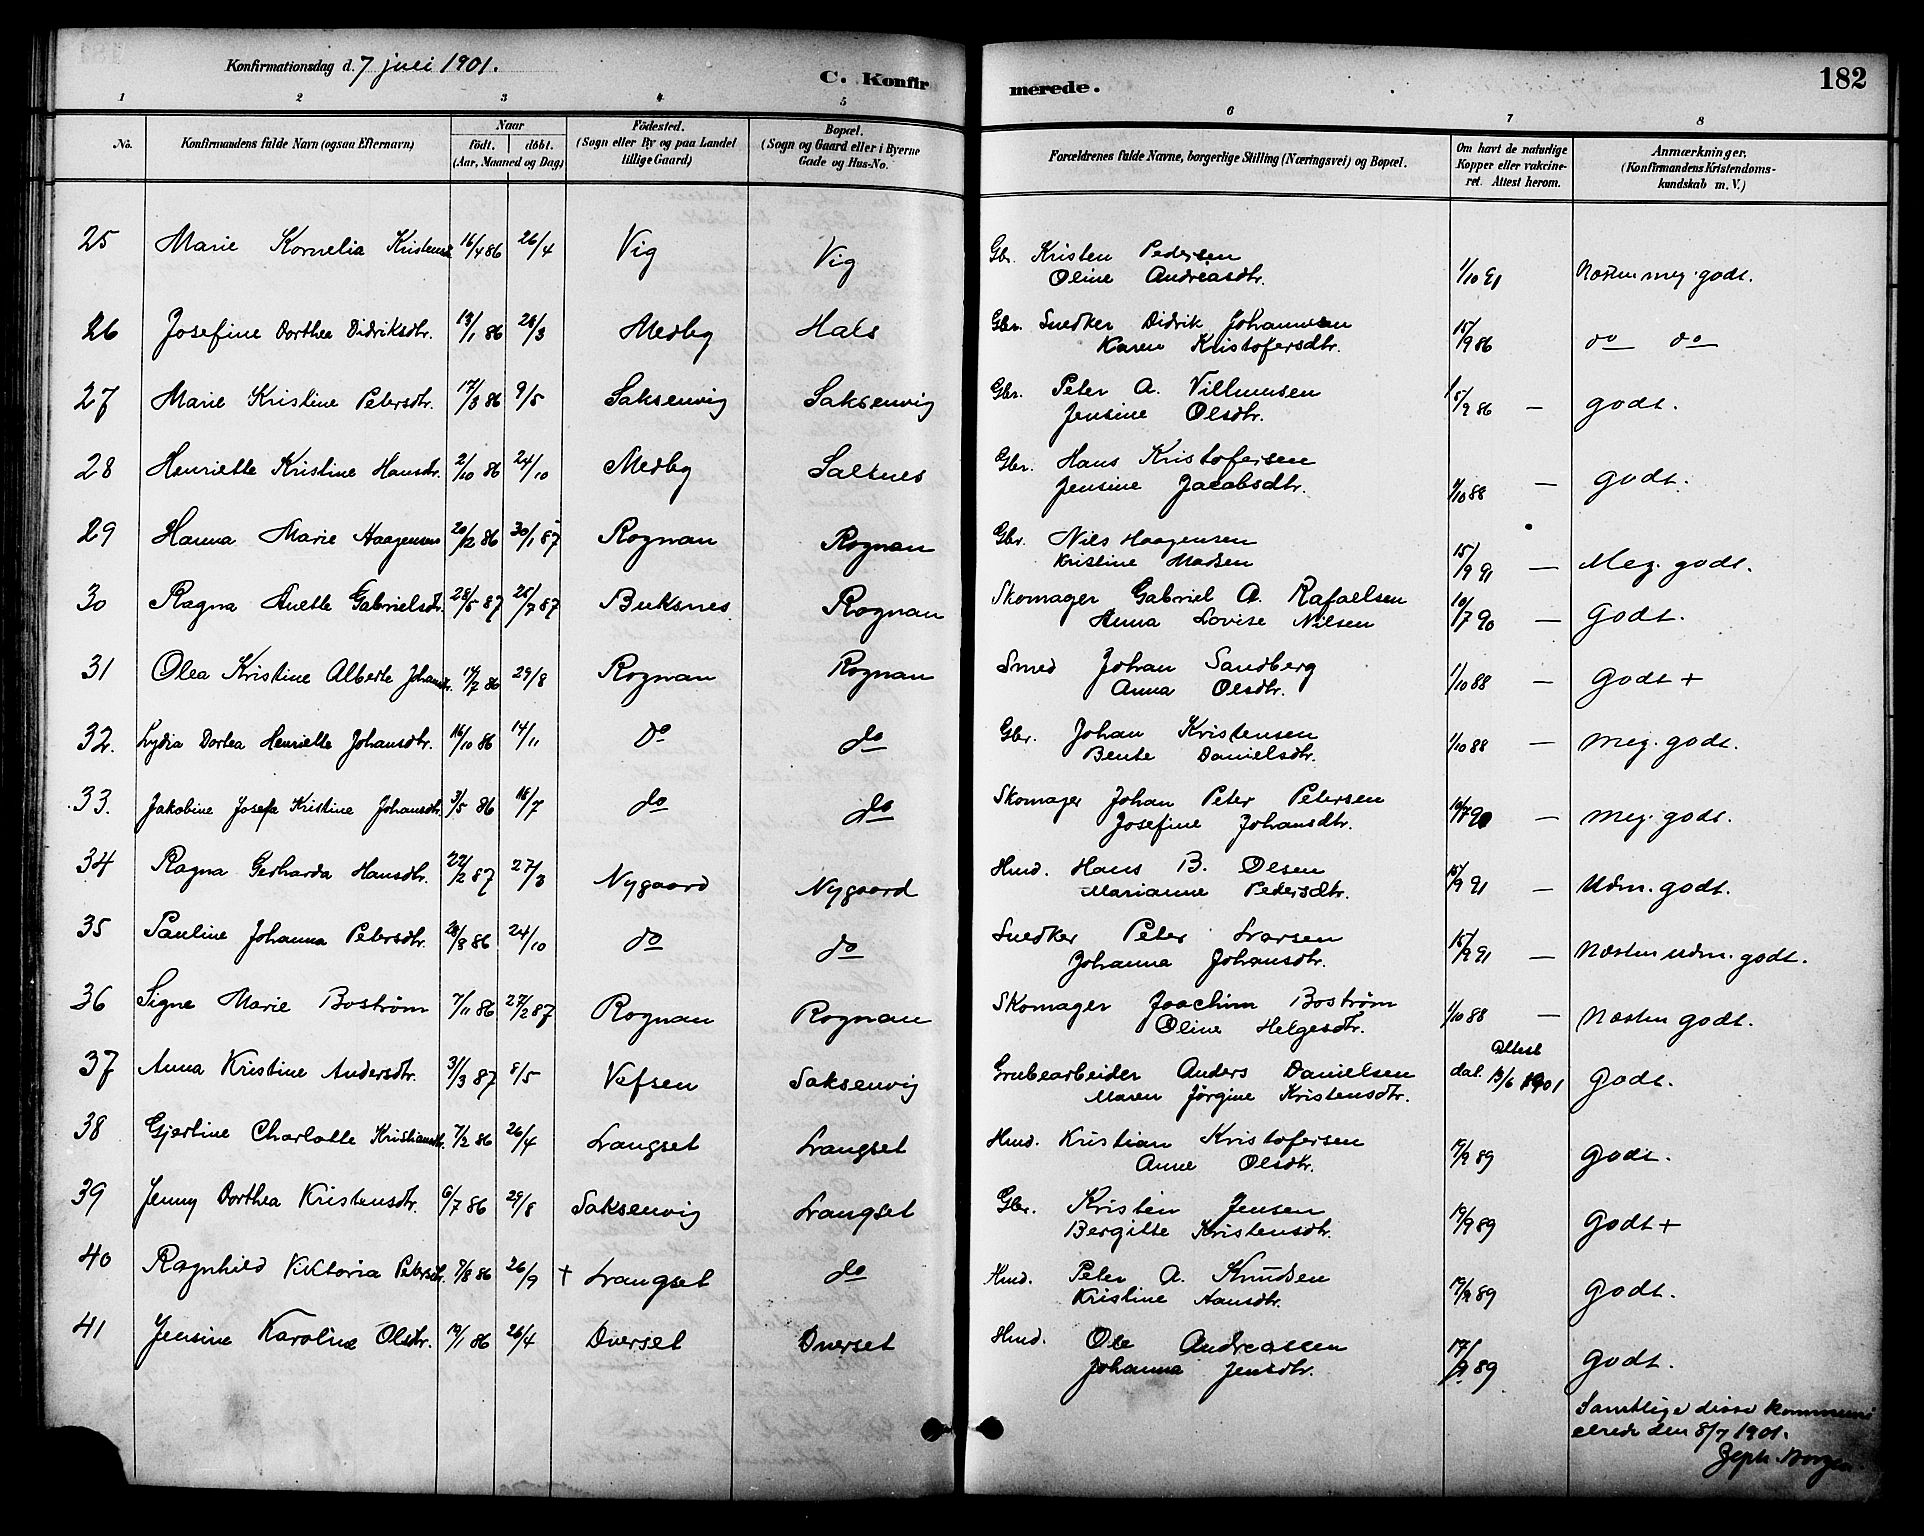 Konfirmationsdag d. 7 juli 1901.
C. Konfirmerede.
182
1 2 3 4 5 6 7 8
No.
Konfirmandens fulde Navn (ogsaa Efternavn)
Naar
født. døbt.
(Aar, Maaned og Dag)
Fødested.
(Sogn eller By og paa Landet
tillige Gaard)
Bopæl.
(Sogn og Gaard eller i Byerne
Gade og Hus-No.
Forældrenes fulde Navne, borgerlige Stilling (Næringsvei) og Bopæl.
Om havt de naturlige
Kopper eller vakcine-
ret. Attest herom.
Anmærkninger.
(Konfirmandens Kristendoms-
kundskab m. V.)
25 Marie Kornelia Kristensd 16/4 86 26/4 Vig Vig Gbr. Kristen Pedersen
Oline Andreasdtr. 1/10 91 Næsten meg. godt.
26 Josefine Dorthea Didriksdtr. 13/1 86 28/3 Medby Hals Gbr. Snedker Didrik Johannesen
Karen Kristofersdtr. 15/9 86 do do
27 Marie Kristine Petersdtr. 17/3 86 9/5 Saksenvig Saksenvig Gbr. Peter A. Villumsen
Jensine Olsdtr. 15/9 86 — godt.
28 Henriette Kristine Hansdtr. 2/10 86 24/10 Medby Saltnes Gbr. Hans Kristofersen
Jensine Jacobsdtr. 1/10 88 — godt.
29 Hanna Marie Haagensen 20/12 86 30/1 87 Rognan Rognan Gbr. Nils Haagensen
Kristine Madsen 15/9 91 — Meg. godt.
30 Ragna Anette Gabrielsdtr. 28/5 87 25/7 87 Buksnes Rognan Skomager Gabriel A. Rafaelsen
Anna Lovise Nilsen 10/7 90 — Godt.
31 Olea Kristine Alberte Johansdtr. 14/7 86 29/8 Rognan Rognan Smed Johan Sandberg
Anna Olsdtr. 1/10 88 — Godt +
32. Lydia Dortea Henriette Johansdtr. 16/10 86 14/11 do do Gbr. Johan Kristensen
Bente Danielsdtr. 1/10 88 — meg. godt.
33. Jakobine Josefa Kristine Johansdtr. 3/5 86 18/7 do do Skomager Johan Peter Petersen
Josefine Johansdtr. 10/7 90 — meg. godt.
34 Ragna Gerharda Hansdtr. 22/2 87 27/3 Nygaard Nygaard Hmd. Hans B. Olsen
Marianne Pedersdtr. 15/9 91 — Udm. godt.
35 Pauline Johanna Petersdtr. 24/10 do do Snedker Peter Larsen
Johanna Johansdtr. 15/9 91 — Næsten udm. godt.
36 Signe Marie Boström 7/11 86 27/2 87 Rognan Rognan Skomager Joachim Boström
Oline Helgesdtr. 1/10 88 — Næsten godt.
37 Anna Kristine Andersdtr. 31/3 87 8/5 Vefsen Saksenvig Grubearbeider Anders Danielsen
Maren Jørgine Kristensdtr. Attest
dat. 13/6 1901 Godt.
38 Gjertine Charlotte Kristiansdtr. 7/2 86 26/4 Langset Langset Hmd. Kristian Kristofersen
Anne Olsdtr. 19/9 89 godt.
39 Jenny Dorthea Kristensdtr. 6/7 86 29/8 Saksenvig Langset Gbr. Kristen Jensen
Bergitte Kristensdtr. 19/9 89 Godt +
40 Ragnhild Viktoria Petersdtr. 7/8 86 26/9 + Langset do Hmd. Peter A. Knudsen
Kristine Hansdtr. 19/9 89 godt.
41 Jensine Karoline Olsdtr. 19/1 86 26/4 Dverset Dverset Hmd. Ole Andreassen
Johanna Jensdtr. 17/9 89 godt.
Samtlige disse kommuni
cerede den 8/7 1901.